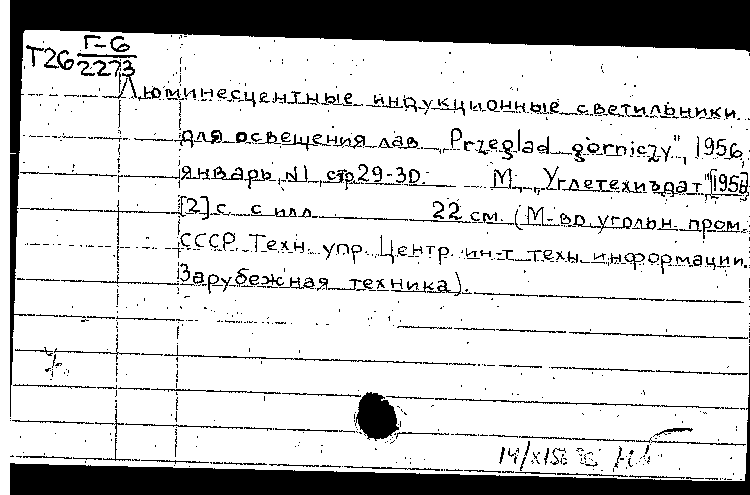 Т26 Г-6
2273
Люминесцентные индукционные светильники
для освещения лав. „Przeglad gorniczy", 1956,
январь, N1, стр. 29-30. М., „Углетехиздат" [1956]
[2] с. с илл. 22 см. (М-во угольн. пром.
СССР. Техн. упр. Центр. ин-т техн. информации.
Зарубежная техника).